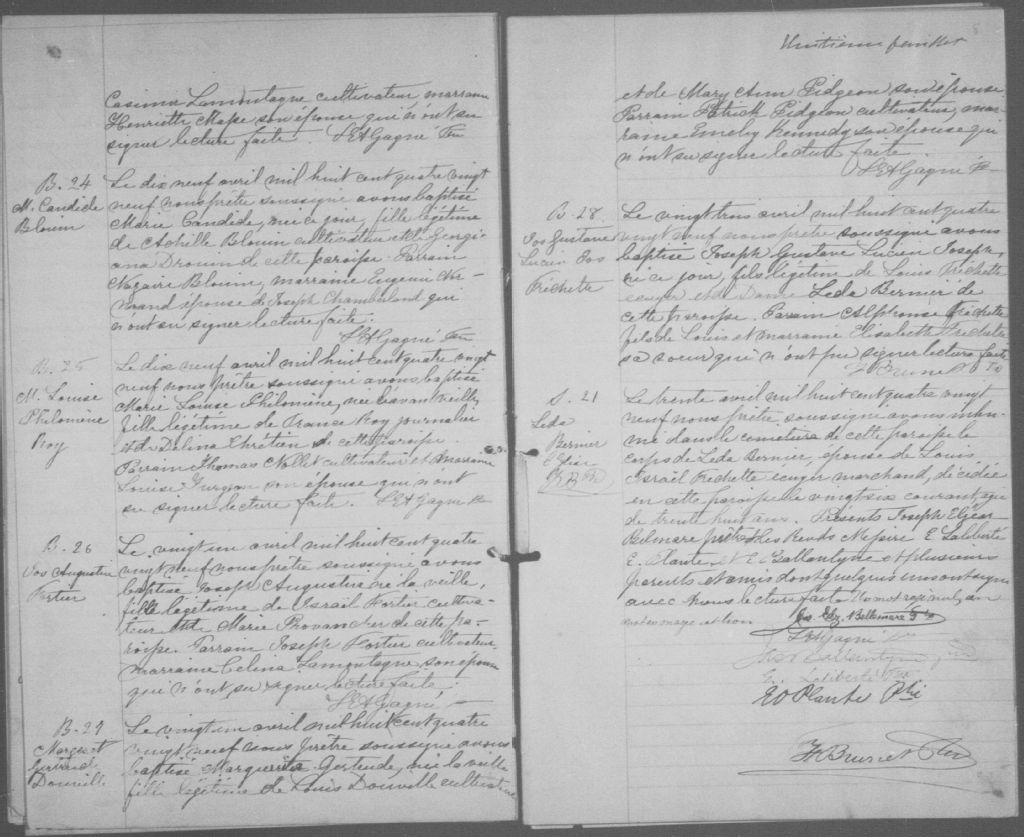 Casimir Lamontagne cultivateur marraine
Henriette Masse son épouse qui n'ont su
signer lecture faite. LEAGagné Ptre
B. 24
M. Candide
Blouin
Le dix neuf avril mil huit cent quatre vingt
neuf nous prêtre soussigné avons baptisé
Marie Candide, née ce jour, fille légitime
de Achille Blouin cultivateur et de Georgi-
ana Drouin de cette paroisse. Parrain
Nazaire Blouin, marraine Eugénie
épouse de Joseph Chamberland qui
n'ont su signer lecture faite.
Gagné Ptre
B. 25
M. Louise
Philomène
Roy
Le dix neuf avril mil huit cent quatre vingt
neuf nous prêtre soussigné avons baptisé
Marie Louise Philomène, née l'avant veille,
fille légitime de France Roy journalier
et de Délina Chrétien de cette paroisse.
Parrain Thomas Nollet cultivateur et marraine
Louise Turgeon son épouse qui n'ont
su signer lecture faite. Gagné Ptre
B. 26
Jos Augustin
Fortier
Le vingt un avril mil huit cent quatre
vingt neuf nous prêtre soussigné avons
baptisé Joseph Augustin né la veille,
fille légitime de Israël Fortier cultiva-
teur et de Marie Provancher de cette pa-
roisse. Parrain Joseph Fortier cultivateur,
marraine Celina Lamontagne son épouse
qui n'ont su signer lecture faite.
Gagné
B. 27
Marguerite
Gertrude
Douville
Le vingt un avril mil huit cent quatre
vingt neuf nous prêtre soussigné avons
baptisé Marguerite Gertrude, née la veille
fille légitime de Louis Douville cultivateur
Huitième feuillet
et de Mary Ann Pidgeon son épouse
Parrain Patrick Pidgeon cultivateur, mar-
raine Emely Kennedy son épouse qui
n'ont su signer lecture faite.
Gagné Ptre
B. 28
Jos Gustave
Lucien Jos
Fréchette
Le vingt trois avril mil huit cent quatre
vingt neuf nous prêtre soussigné avons
baptisé Joseph Gustave Lucien Joseph,
né ce jour, fils légitime de Louis Fréchette
écuyer et de Dame Leda Bernier de
cette paroisse. Parrain Alphonse Fréchette
fils de Louis et marraine Elisabeth Fréchette
sa soeur qui n'ont pu signer lecture faite
Brunet Ptre
S. 21
Leda
Bernier
Le trente avril mil huit cent quatre vingt
neuf nous prêtre soussigné avons inhu-
mé dans le cimetière de cette paroisse le
corps de Leda Bernier, épouse de Louis
Israël Fréchette écuyer marchand, décédée
en cette paroisse le vingt six courant, agée
de trente huit ans. Présents Joseph Elzéar
Belmare prêtre et les Revds Messire E. Laliberté
E. Plante et E Ballantyne et plusieurs
parents et amis dont quelques uns ont signé
avec nous lecture faite.
Jos Elz. Bellemare Ptre
Gagné
Ballantyne
E. Laliberté Ptre
EO Plante Ptre
Brunet Ptre